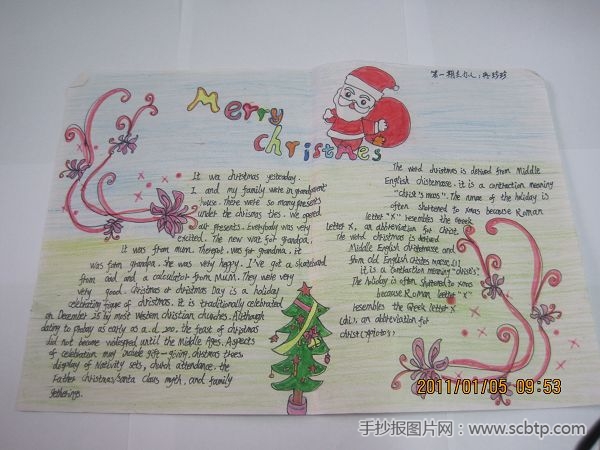 Merry
christmas
第一期主办人:
It was christmas yesterday.
I and my family were in grandparent
house. There were so many presents
under the chrismas ties. We opened
our presents. Everybody was very
excited. The new wat for grandpa,
it was from mum. The was for grandma, it
was form grandpa. She was very happy. I've got a skateboard
from dad and a calculator from MuM. They were very
very good. Christmas or christmas Day is a holiday
celebrating of christmas. it is traditionally celebrated
on December 25 by most Western christian churches. Although
dating to as early as a.d 200. the feast of christmas
did not become widespread until the Middle Ages. Aspects
of celebration may include gift-giving, christmas trees,
display of Nativity sets, church attendance, the
Father christmas/Santa Claus myth, and family
gatherings.
The word christmas is derived from Middle
English christemasse. it is a contraction meaning
"christ's mass". The name of the holiday is
often shortened to xmas because Roman
letter "X" resembles the Greek
letter X, an abbreviation for Christ.
The word christmas is derived
Middle English christemasse and
from old English cristes mæsse.[1]
it is a contraction meaning "christ's".
The holiday is often shortened to xmas
because Roman letter "x"
resembles the Greek letter X
(chi), an abbreviation for
christ
2011/01/05 09:53
手抄报图片网:www.scbtp.com